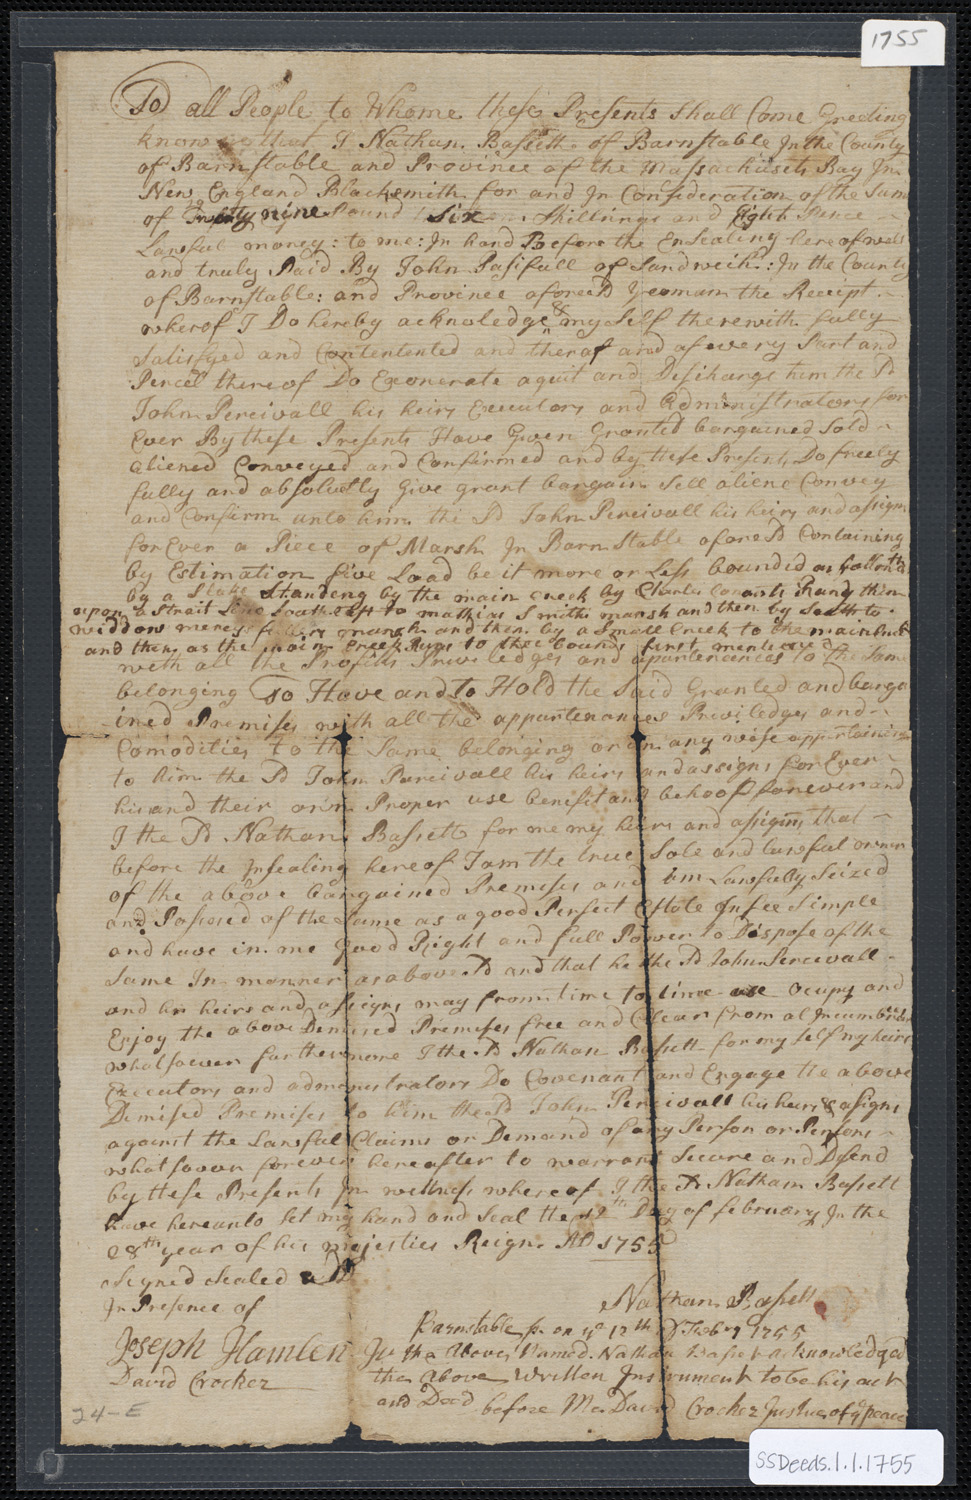 1755
To all People to Whome these Presents Shall Come Greeting
know ye that I Nathan Bassett of Barnstable In the County
of Barnstable and Province of the Massachusets Bay In
New England Blacksmith for and In Consideration of the Sum
of Twenty nine Pound Six Shillungs and Eight Pence
Lawful money: to me: In hand Before the Ensealing hereof well
and truly Paid By John of Sandweich: In the County
of Barnstable: and Province aforesd yeoman the Receipt
wherof I Do hereby acknoledge & my self therewith fully
Satisfyed and Contentented and therof and of every Part and
Percel thereof Do Exonerate aquit and Discharge him the Sd
John Percivall his heirs Executors and Administrators for
Ever By these Presents Have Given Granted bargained Sold
aliened Conveyed and Confirmed and by these Presents Do freely
fully and absolutly Give grant bargain Sell aliene Convey
and Confirm unto him the Sd John Percivall his heirs and assigns
for Ever a Piece of Marsh In Barnstable aforesd Containing
by Estimation five Load be it more or Less bounded as
by a Stake Standeng by the main creek by Charles Conants Rang then
upon a Strait Line South East to mathias Smiths marsh and then by Said
widdow mercy fullers marsh and then by a Small Creek to the main
and then as the main Creek Runs to thee bounds first mentioned
with all the Profits Priviledges and apurtenances to the Same
belonging To Have and To Hold the Said Granted and barga
ined Premises with all the appurtenances Priviledges and
Comodities to the Same belonging or in any wise appertaining
to him the Sd John Percivall his heirs and assigns for Ever
his and their own Proper use benefit and behoof forever and
I the Sd Nathan Bassett for me my heirs and assigns that
before the Insealing hereof I am the true Sole and lawful owner
of the above bargained Premises and am Lawfully Seized
and Possesed of the Same as a good Perfect Estate In fee Simple
and have in me Good Right and full Power to Dispose of the
Same In manner as aboved and that he the Sd John Percevall
and his heirs and assigns may from time to time use Ocupy and
Enjoy the above Demised Premises free and Clear from al
whatsoever furthermore I the Sd Nathan Bassett for my self my heirs
Executors and administrators Do Covenant and Engage the above
Demised Premises to him the Sd John Percivall his heirs & assigns
against the Lawful Claims or Demand of any Person or Persons
whatsoever forever hereafter to warrant Secure and Defend
by these Presents In wettness whereof I the Sd Nathan Bassett
have hereunto Set my hand and Seal the 12th Day of february In the
28th year of his majesties Reign AD 1755
Signed Sealed & DD
In Presence of
Nathan Bassett
Joseph Hamlen
David Crocker
Barnstable ss on ye 12th of Febry 1755
the Above Named Nathan Bassett acknowledged
the above written Instrument to be his act
and Deed before Me David Crocker Justice of ye peace
24-E
SSDeeds.1.1.1755